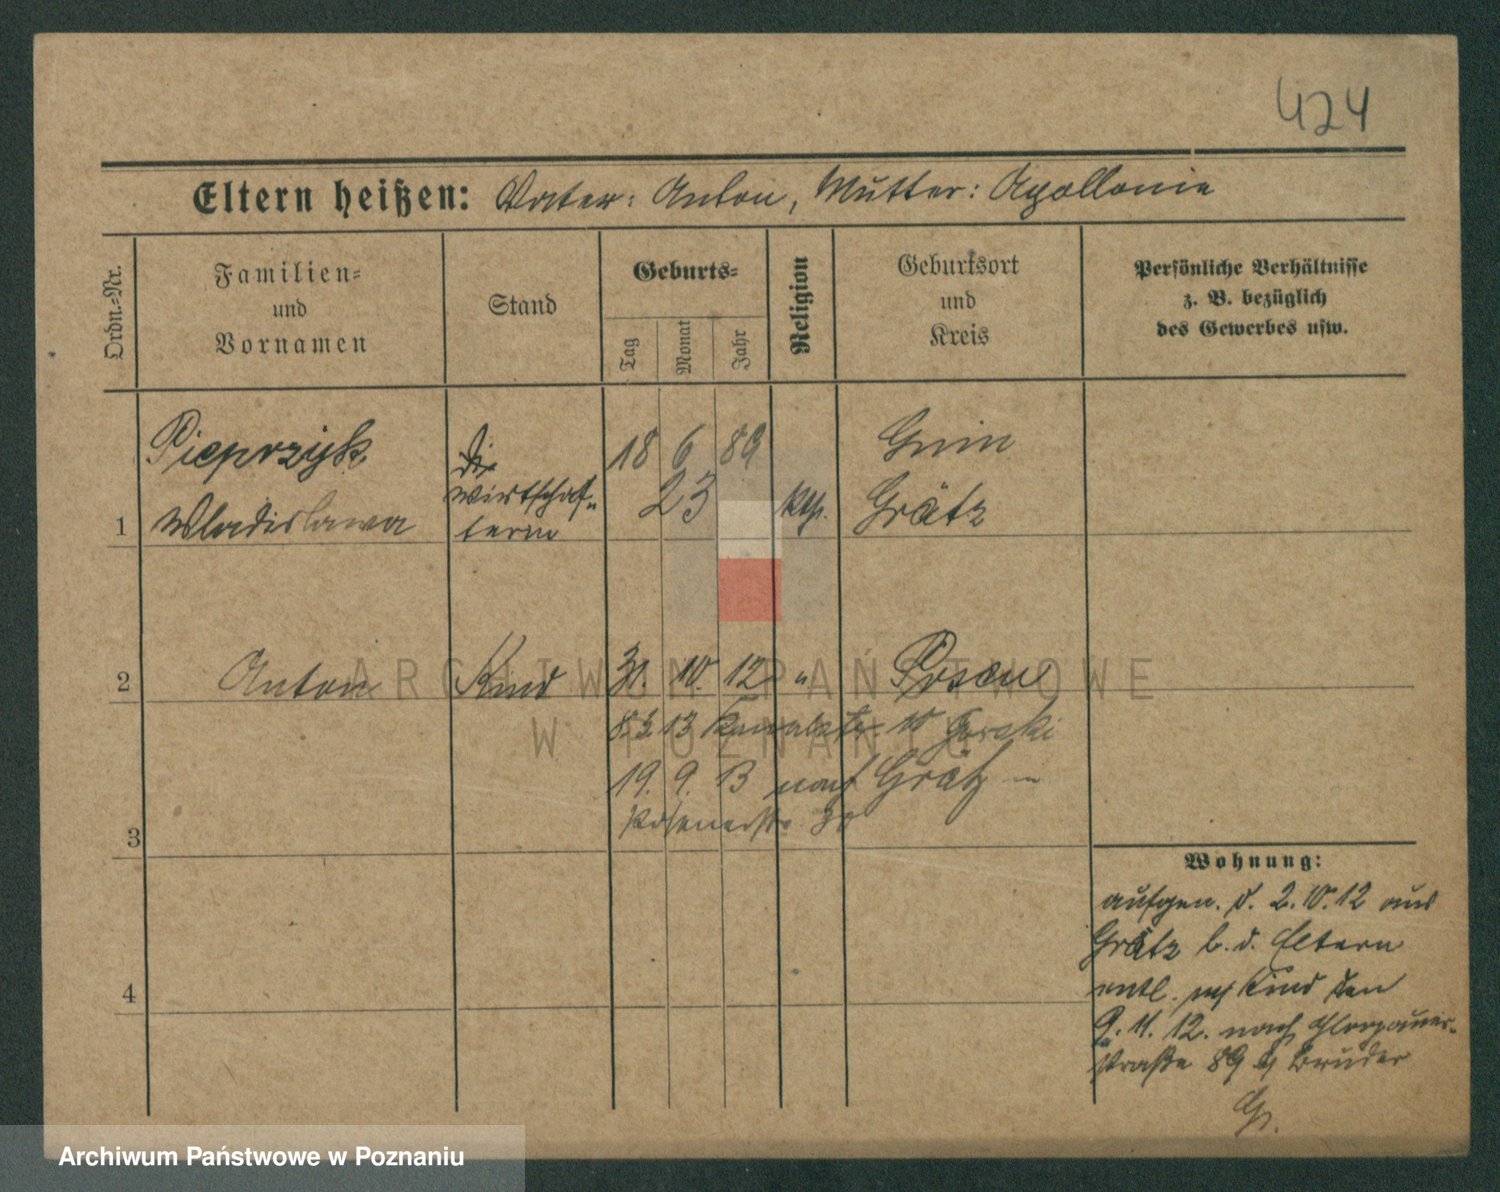 424
Eltern heißen: Vater: Anton, Mutter: Apollonie
Ordn.-Nr.
Familien-
und
Vornamen
Stand
Geburts-
Tag
Monat
Jahr
Religion
Geburtsort
und
Kreis
Persönliche Verhältnisse
z. B. bezüglich
des Gewerbes usw.
Pieprzyk
18 6 89
23
1 Wladislawa
wirtschaf-
terin
kth.
Gnin
Grätz
2 Anton Kind 31. 10. 12 " Posen
8.3.13 Kanalstr. 10 Gorski
19. 9. 13 nach Grätz
Posenerstr.
3
4
Wohnung:
aufgen. d. 2.10.12 aus
Grätz b. d. Eltern
entl. mit Kind den
9. 11. 12. nach Glogauer-
straße 89 Bruder
ARCHIWUM PAŃSTWOWE
W POZNANIU
Archiwum Państwowe w Poznaniu